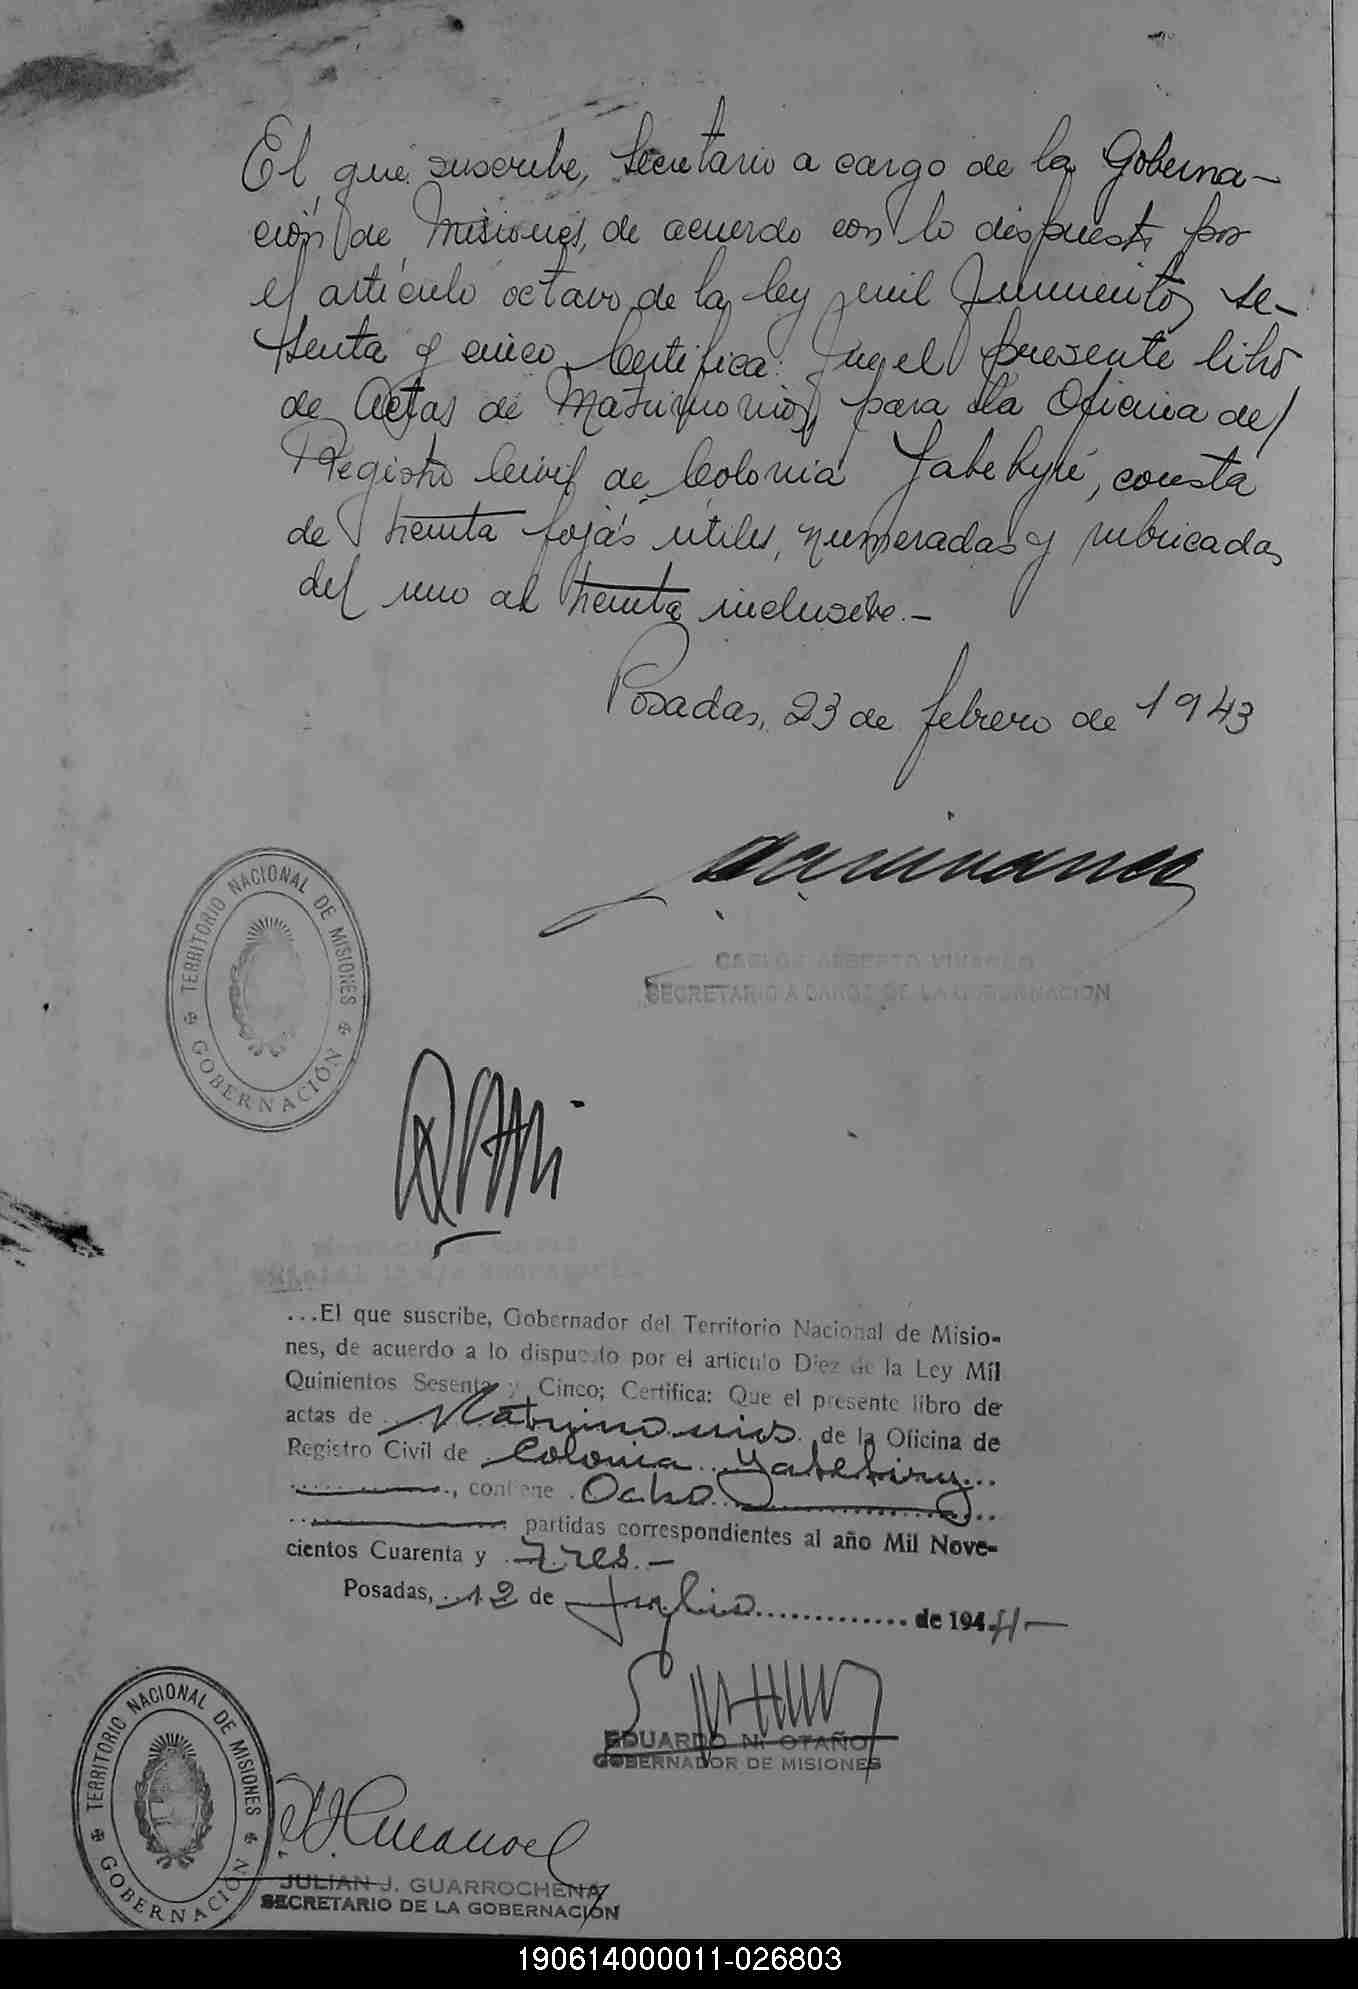 El que suscribe, Secretario a cargo de la Goberna-
ción de Misiones, de acuerdo con lo dispuesto por
el artículo octavo de la ley mil quinientos se-
senta y cinco, Certifica: Que el presente libro
de Actas de Matrimonios, para la Oficina del
Registro Civil de Colonia Yabebyrí, consta
de treinta fojas útiles, numeradas y rubricadas
del uno al treinta inclusive.-
Posadas, 23 de febrero de 1943
TERRITORIO NACIONAL DE MISIONES
GOBERNACIÓN
CARLOS ALBERTO
SECRETARIO A CARGO DE LA GOBERNACION
...El que suscribe, Gobernador del Territorio Nacional de Misio-
nes, de acuerdo a lo dispuesto por el articulo Diez de la Ley Mil
Quinientos Sesenta y Cinco; Certifica: Que el presente libro de
actas de Matrimonios de la Oficina de
Registro Civil de Colonia Yabebiry...
, contiene Ocho
partidas correspondientes al año Mil Nove-
cientos Cuarenta y Tres.-
Posadas, 12 de Julio de 1944-
EDUARDO N. OTAÑO
GOBERNADOR DE MISIONES
TERRITORIO NACIONAL DE MISIONES
GOBERNACIÓN
JULIAN J. GUARROCHENA
SECRETARIO DE LA GOBERNACIÓN
190614000011-026803